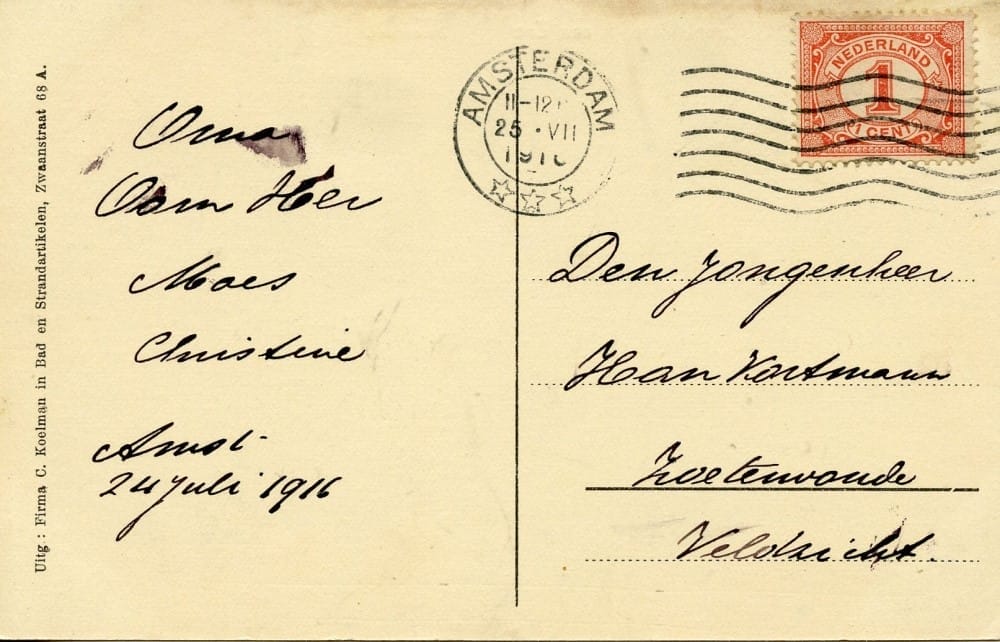 Uitg.: Firma C. Koelman in Bad en Strandartikelen, Zwaanstraat 68 A.
Oma
Oom Her
Moes
Christine
Amst.
24 Juli 1916
AMSTERDAM
11-12
25 · VII
191
NEDERLAND
1
1 CENT
Den Jongenheer
Han Kortmann
Zoeterwoude
Veldzicht.